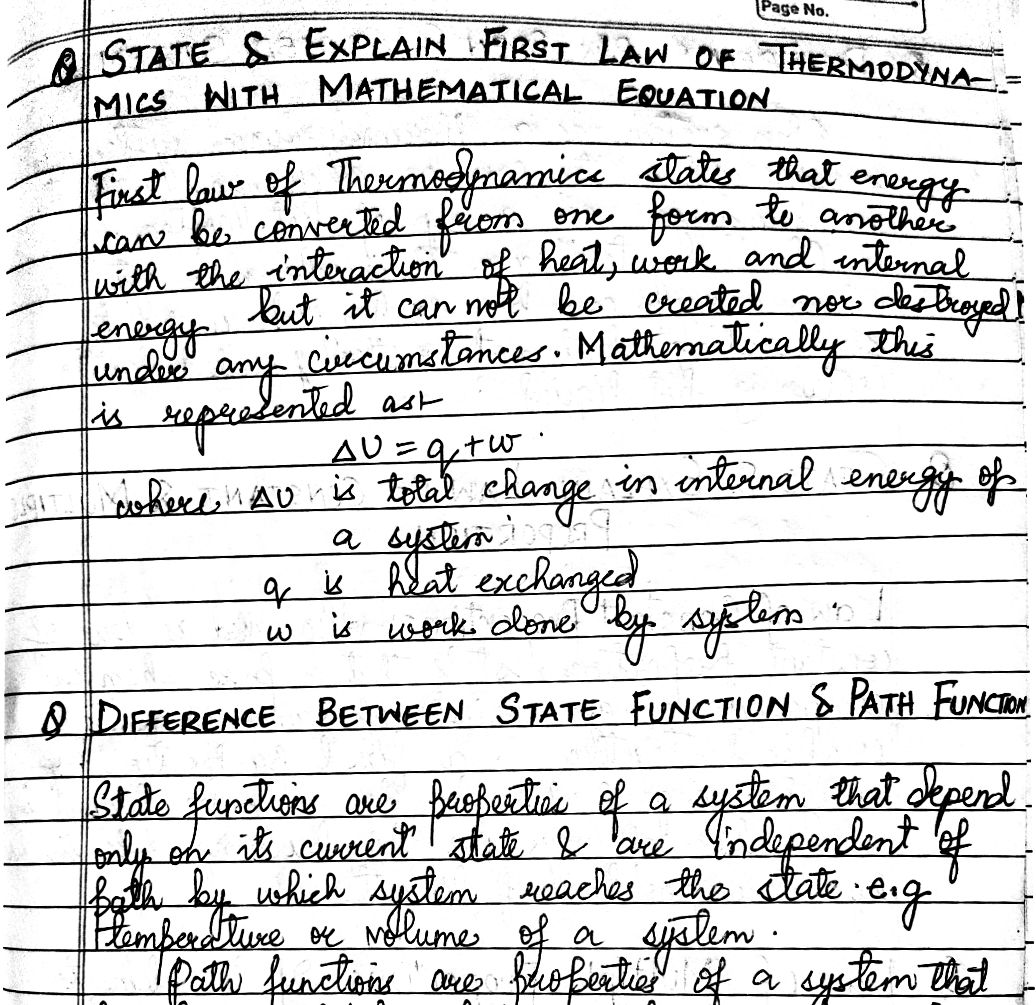 Page No.
Q STATE & EXPLAIN FIRST LAW OF THERMODYNA-
MICS WITH MATHEMATICAL EQUATION
First law of Thermodynamics states that energy
can be converted from one form to another
with the interaction of heat, work and internal
energy but it can not be created nor destroyed
under any circumstances. Mathematically this
is represented as:-
ΔU = q + w
where ΔU is total change in internal energy of
a system
q is heat exchanged
w is work done by system
Q DIFFERENCE BETWEEN STATE FUNCTION & PATH FUNCTION
State functions are properties of a system that depend
only on its current state & are independent of
path by which system reaches the state. e.g
temperature or volume of a system.
Path functions are properties of a system that